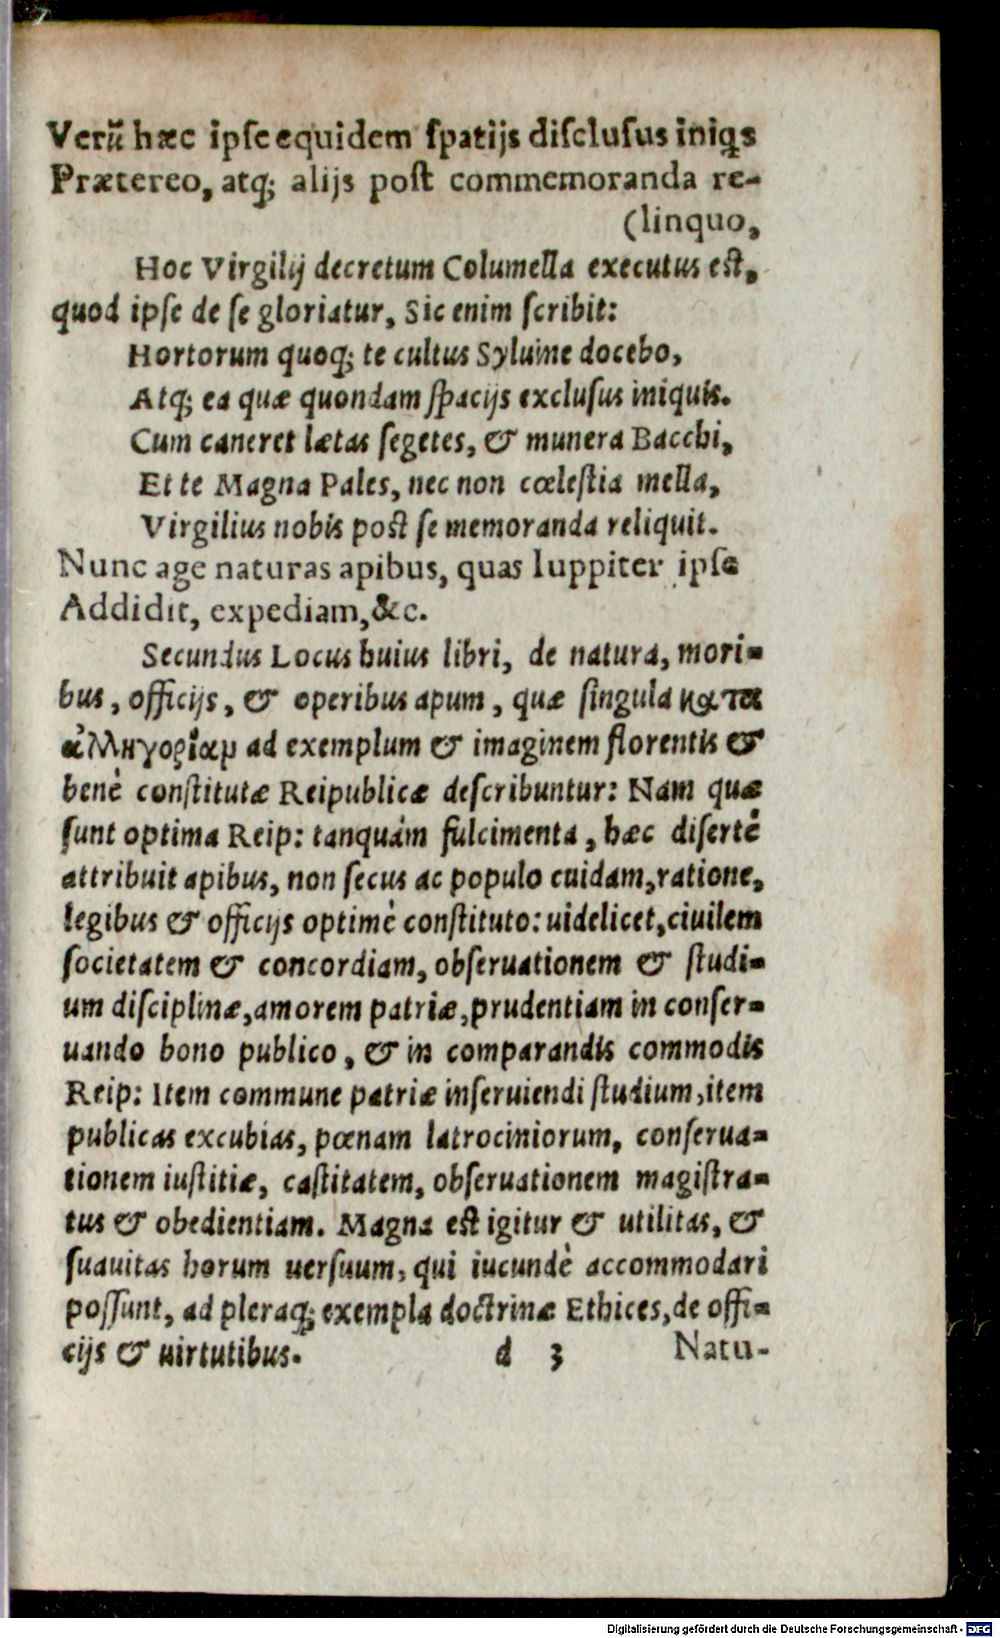 Verũ hæc ipse equidem spatijs disclusus iniqs
Prætereo, atq; alijs post commemoranda re-
(linquo,
Hoc Virgilij decretum Columella executus est,
quod ipse de se gloriatur, Sic enim scribit:
Hortorum quoq; te cultus Syluine docebo,
Atq; ea quæ quondam spacijs exclusus iniquis.
Cum caneret lætas segetes, & munera Bacchi,
Et te Magna Pales, nec non cœlestia mella,
Virgilius nobis post se memoranda reliquit.
Nunc age naturas apibus, quas Iuppiter ipse
Addidit, expediam, &c.
Secundus Locus huius libri, de natura, mori-
bus, officijs, & operibus apum, quæ singula κατα
ἀλληγορίαμ ad exemplum & imaginem florentis &
benè constitutæ Reipublicæ describuntur: Nam quæ
sunt optima Reip: tanquàm fulcimenta, hæc disertè
attribuit apibus, non secus ac populo cuidam, ratione,
legibus & officijs optimè constituto: uidelicet, ciuilem
societatem & concordiam, obseruationem & studi-
um disciplinæ, amorem patriæ, prudentiam in conser-
uando bono publico, & in comparandis commodis
Reip: Item commune patriæ inseruiendi studium, item
publicas excubias, pœnam latrociniorum, conserua-
tionem iustitiæ, castitatem, obseruationem magistra-
tus & obedientiam. Magna est igitur & utilitas, &
suauitas horum uersuum, qui iucundè accommodari
possunt, ad pleraq; exempla doctrinæ Ethices, de offi-
cijs & uirtutibus. d 3 Natu-
Digitalisierung gefördert durch die Deutsche Forschungsgemeinschaft - DFG